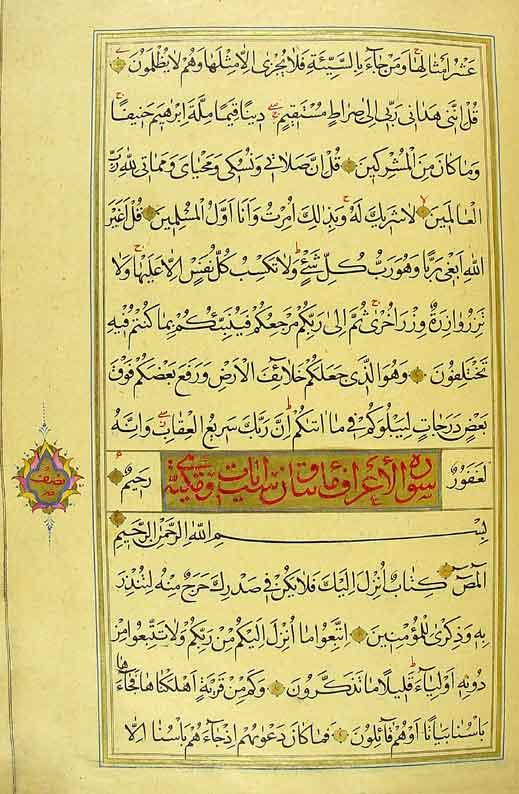 عَشْرُ اَمْثَالِهَا وَمَنْ جَآءَ بِالسَّيِّئَةِ فَلَا يُجْزٰى اِلَّا مِثْلَهَا وَهُمْ لَا يُظْلَمُونَ
قُلْ اِنَّنِى هَدَانِى رَبِّى اِلٰى صِرَاطٍ مُسْتَقِيمٍ دِينًا قِيَمًا مِلَّةَ اِبْرٰهِيمَ حَنِيفًا
وَمَا كَانَ مِنَ الْمُشْرِكِينَ قُلْ اِنَّ صَلَاتِى وَنُسُكِى وَمَحْيَاىَ وَمَمَاتِى لِلّٰهِ رَبِّ
الْعَالَمِينَ لَا شَرِيكَ لَهُ وَبِذٰلِكَ اُمِرْتُ وَاَنَا اَوَّلُ الْمُسْلِمِينَ قُلْ اَغَيْرَ
اللّٰهِ اَبْغِى رَبًّا وَهُوَ رَبُّ كُلِّ شَىْءٍ وَلَا تَكْسِبُ كُلُّ نَفْسٍ اِلَّا عَلَيْهَا وَلَا
تَزِرُ وَازِرَةٌ وِزْرَ اُخْرٰى ثُمَّ اِلٰى رَبِّكُمْ مَرْجِعُكُمْ فَيُنَبِّئُكُمْ بِمَا كُنْتُمْ فِيهِ
تَخْتَلِفُونَ وَهُوَ الَّذِى جَعَلَكُمْ خَلَائِفَ الْاَرْضِ وَرَفَعَ بَعْضَكُمْ فَوْقَ
بَعْضٍ دَرَجَاتٍ لِيَبْلُوَكُمْ فِى مَا اٰتٰيكُمْ اِنَّ رَبَّكَ سَرِيعُ الْعِقَابِ وَاِنَّهُ
لَغَفُورٌ رَحِيمٌ
سورة الأعراف مأتان وست ايات وهى مكية
نصف
بِسْمِ اللّٰهِ الرَّحْمٰنِ الرَّحِيمِ
الٓمٓصٓ كِتَابٌ اُنْزِلَ اِلَيْكَ فَلَا يَكُنْ فِى صَدْرِكَ حَرَجٌ مِنْهُ لِتُنْذِرَ
بِهِ وَذِكْرٰى لِلْمُؤْمِنِينَ اِتَّبِعُوا مَا اُنْزِلَ اِلَيْكُمْ مِنْ رَبِّكُمْ وَلَا تَتَّبِعُوا مِنْ
دُونِهِ اَوْلِيَآءَ قَلِيلًا مَا تَذَكَّرُونَ وَكَمْ مِنْ قَرْيَةٍ اَهْلَكْنَاهَا فَجَآءَهَا
بَاْسُنَا بَيَاتًا اَوْ هُمْ قَآئِلُونَ فَمَا كَانَ دَعْوٰيهُمْ اِذْ جَآءَهُمْ بَاْسُنَا اِلَّا